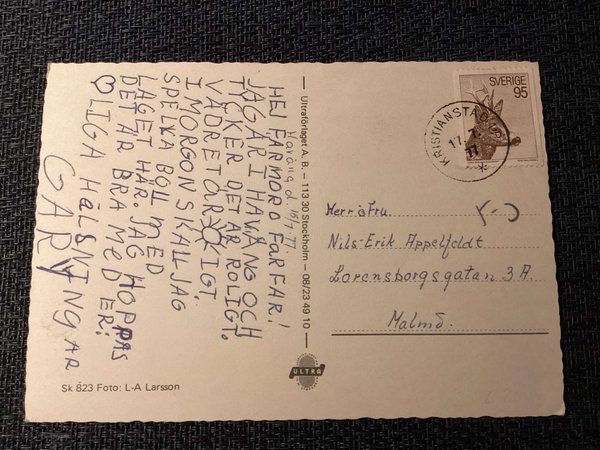 Haväng d. 16/7.77.
HEJ FARMOR O FARFAR!
JAG ÄR I HAVÄNG OCH
TYCKER DET ÄR ROLIGT.
VÄDRET ÄR
I MORGON SKALL JAG
SPELA BOLL MED
LAGET HÄR. JAG HOPPAS
DET ÄR BRA MED ER!
♡LIGA HÄLSNINGAR
GARY
Ultraförlaget A. B. – 113 30 Stockholm – 08/23 49 10
ULTRA
Sk 823 Foto: L-A Larsson
SVERIGE
95
KRISTIANSTAD
17.7.
77
Herr o Fru.
Nils-Erik Appelfeldt
Lorensborgsgatan 3 A.
Malmö.